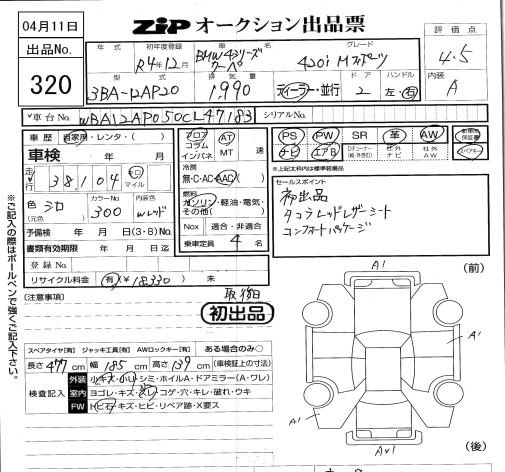 04月11日
ZIP オークション出品票
評価点
4.5
内装
A
出品No.
320
年式 初年度登録 車名 グレード
R4年12月 BMW4シリーズ クーペ 420i Mスポーツ
型式 排気量 ドア ハンドル
3BA-12AP20 1990 ディーラー・並行 2 左・右
車台No. WBA12AP050CL47183 シリアルNo.
車歴 自家用・レンタ・( )
車検 年 月
走行 38,104 キロ マイル
色 シロ (元色) カラーNo 300 内装色 Wレッド
予備検 年 月 日(3・8)No.
書類有効期限 年 月 日迄
登録No.
リサイクル料金 有(¥18330) 未
フロア コラム インパネ AT MT 速
冷房 無・C・AC・AAC
燃料 ガソリン・軽油・電気・その他( )
Nox 適合・非適合
乗車定員 4 名
PS PW SR 革 AW 新車時保証書
ナビ エアB 社外ナビ 社外AW
※上記太枠内は標準装備品
セールスポイント
初出品
タコラレッドレザーシート
コンフォートパッケージ
(注意事項)
初出品
スペアタイヤ[有] ジャッキ工具[有] AWロックキー[有] ある場合のみ○
長さ 477 cm 幅 185 cm 高さ 139 cm (車検証上の寸法)
検査記入
外装 小キズ・小凹・シミ・ホイルA・ドアミラー(A・ワレ)
室内 ヨゴレ・キズ・スレ・コゲ・穴・キレ・破れ・ウキ
FW 飛石・キズ・ヒビ・リペア跡・X要ス
※ご記入の際はボールペンで強くご記入下さい。
(前)
A1
A1
A1
AV1
(後)